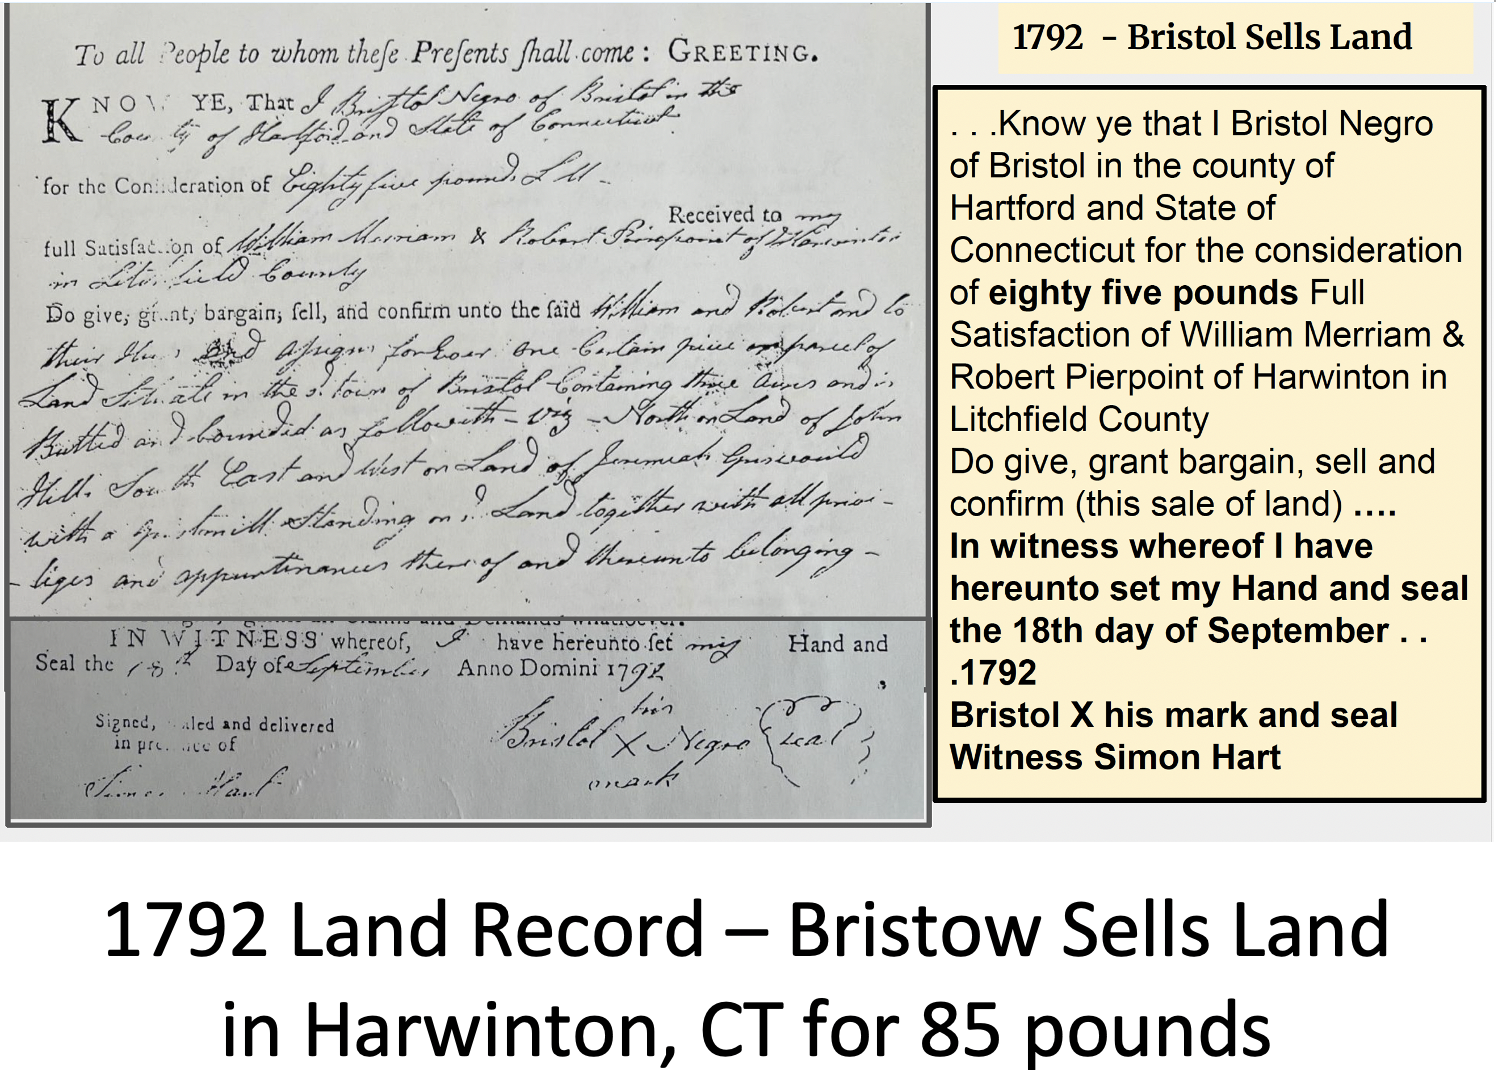 To all People to whom theſe Preſents ſhall come : GREETING.
KNOW YE, That I Briſtol Negro of Bristol in the
County of Hartford and State of Connecticut
for the Conſideration of Eighty five pounds L M -
Received to my
full Satisfaction of William Merriam & Robert Pierepoint of Harwinton
in Litchfield County
Do give, grant, bargain, ſell, and confirm unto the ſaid William and Robert and to
their and aſsigns forever one Certain piece or parcel of
Land Situate in the sd. town of Bristol Containing three Acres and is
Butted and bounded as followeth - Viz - North on Land of John
Hills South East and West on Land of Jeremiah Griswould
with a Gristmill Standing on sd. Land together with all privi-
-liges and appurtinances there of and thereunto belonging -
IN WITNESS whereof, I have hereunto ſet my Hand and
Seal the 18th Day of September Anno Domini 1792
Signed, ſealed and delivered
in preſence of
Simon Hart
his
Bristol X Negro
mark
seal
1792 - Bristol Sells Land
. . .Know ye that I Bristol Negro
of Bristol in the county of
Hartford and State of
Connecticut for the consideration
of eighty five pounds Full
Satisfaction of William Merriam &
Robert Pierpoint of Harwinton in
Litchfield County
Do give, grant bargain, sell and
confirm (this sale of land) ....
In witness whereof I have
hereunto set my Hand and seal
the 18th day of September . .
.1792
Bristol X his mark and seal
Witness Simon Hart
1792 Land Record – Bristow Sells Land
in Harwinton, CT for 85 pounds